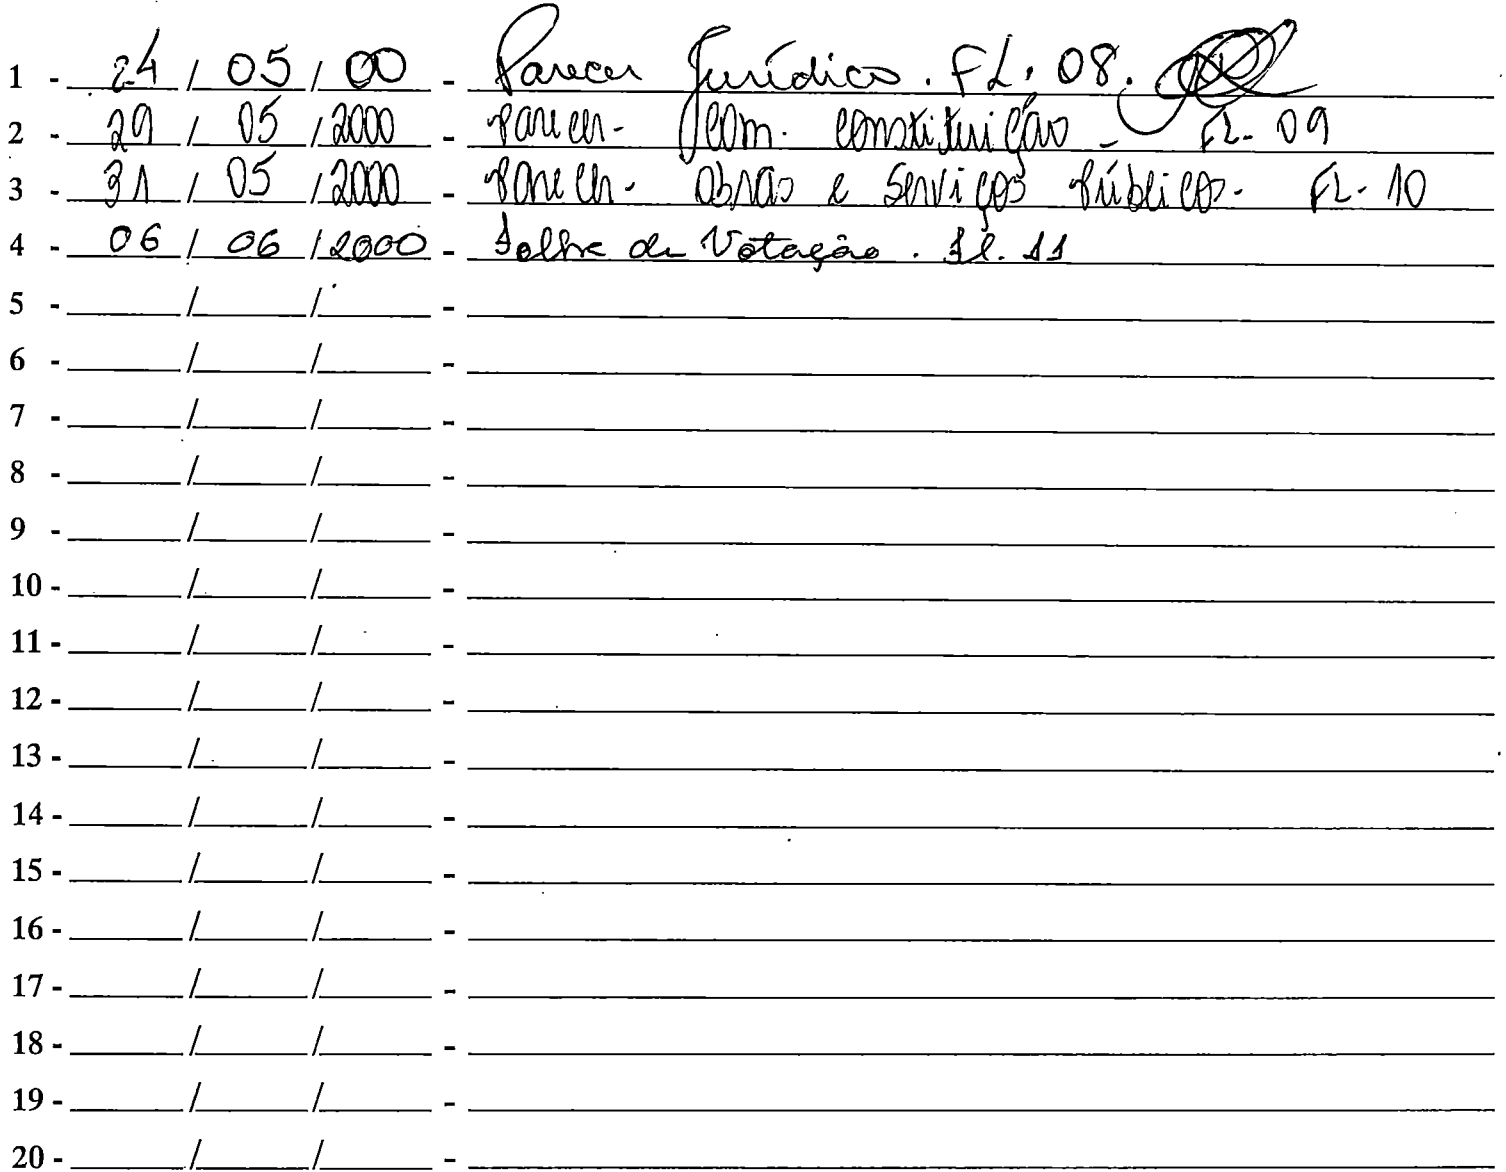 1 - 24 / 05 / 00 - Parecer Jurídico. FL. 08.
2 - 29 / 05 / 2000 - Parecer - Com. Constituição - FL - 09
3 - 31 / 05 / 2000 - Parecer - Obras e Serviços Públicos - FL - 10
4 - 06 / 06 / 2000 - Folha de Votação. Fl. 11
5 - / / -
6 - / / -
7 - / / -
8 - / / -
9 - / / -
10 - / / -
11 - / / -
12 - / / -
13 - / / -
14 - / / -
15 - / / -
16 - / / -
17 - / / -
18 - / / -
19 - / / -
20 - / / -